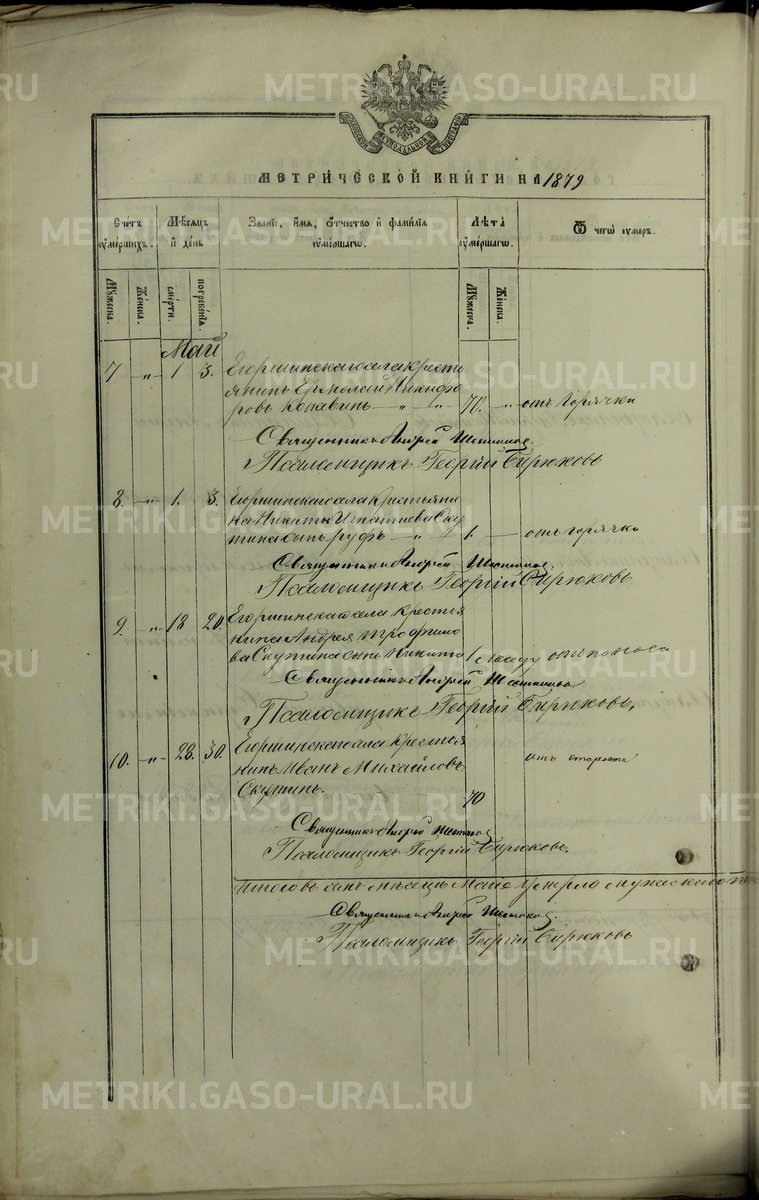 METRIKI.GASO-URAL.RU
МЕТРИЧЕСКОЙ КНИГИ НА 1879
Счетъ умершихъ.
Мѣсяцъ и день
Званіе, имя, отчество и фамилія умершагѡ.
Лѣта умершагѡ.
Ѿ чегѡ умеръ.
Мужеска.
Женска.
смерти.
погребенія.
Мужеска.
Женска.
Май
7 „ 1 3. Егоршинскаго села кресть
янинъ Ермолай Никифо
ровъ Копавинъ „ „ 70. „ отъ горячки
Священникъ Андрей
Псаломщикъ Георгій Бирюковъ
8. „ 1. 3. Егоршинскаго села крестьяни
на Никиты Игнатиева Ску
тина сынъ Руфъ „ 1. отъ горячки
Священникъ Андрей
Псаломщикъ Георгій Бирюковъ
9. „ 18 20. Егоршинскаго села крестья
нина Андрея Трофимо
ва Скутина сынъ Никита 1 месяцу отъ поноса
Священникъ Андрей
Псаломщикъ Георгій Бирюковъ.
10. „ 28. 30. Егоршинскаго села крестья
нинъ Иванъ Михайловъ отъ старости
Скутинъ. 70
Священникъ Андрей
Псаломщикъ Георгій Бирюковъ.
Итого въ семъ месяце Мае умерло мужескаго
Священникъ Андрей
Псаломщикъ Георгій Бирюковъ